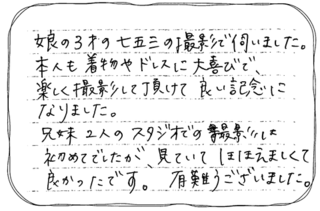 娘の3才の七五三の撮影で伺いました。
本人も着物やドレスに大喜びで、
楽しく撮影して頂けて良い記念に
なりました。
兄妹2人のスタジオでの撮影は
初めてでしたが、見ていてほほえましくて
良かったです。有難うございました。